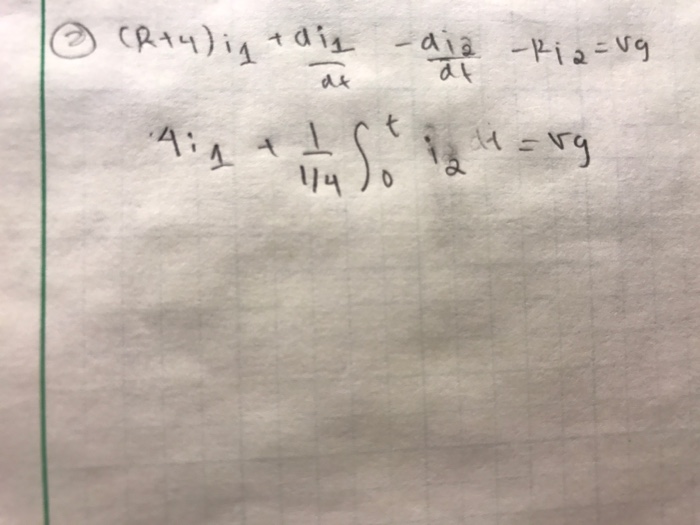 ② (R+4) i₁ + di₁/dt - di₂/dt - Ri₂ = vg
4i₁ + 1/(1/4) ∫₀ᵗ i₂ dt = vg